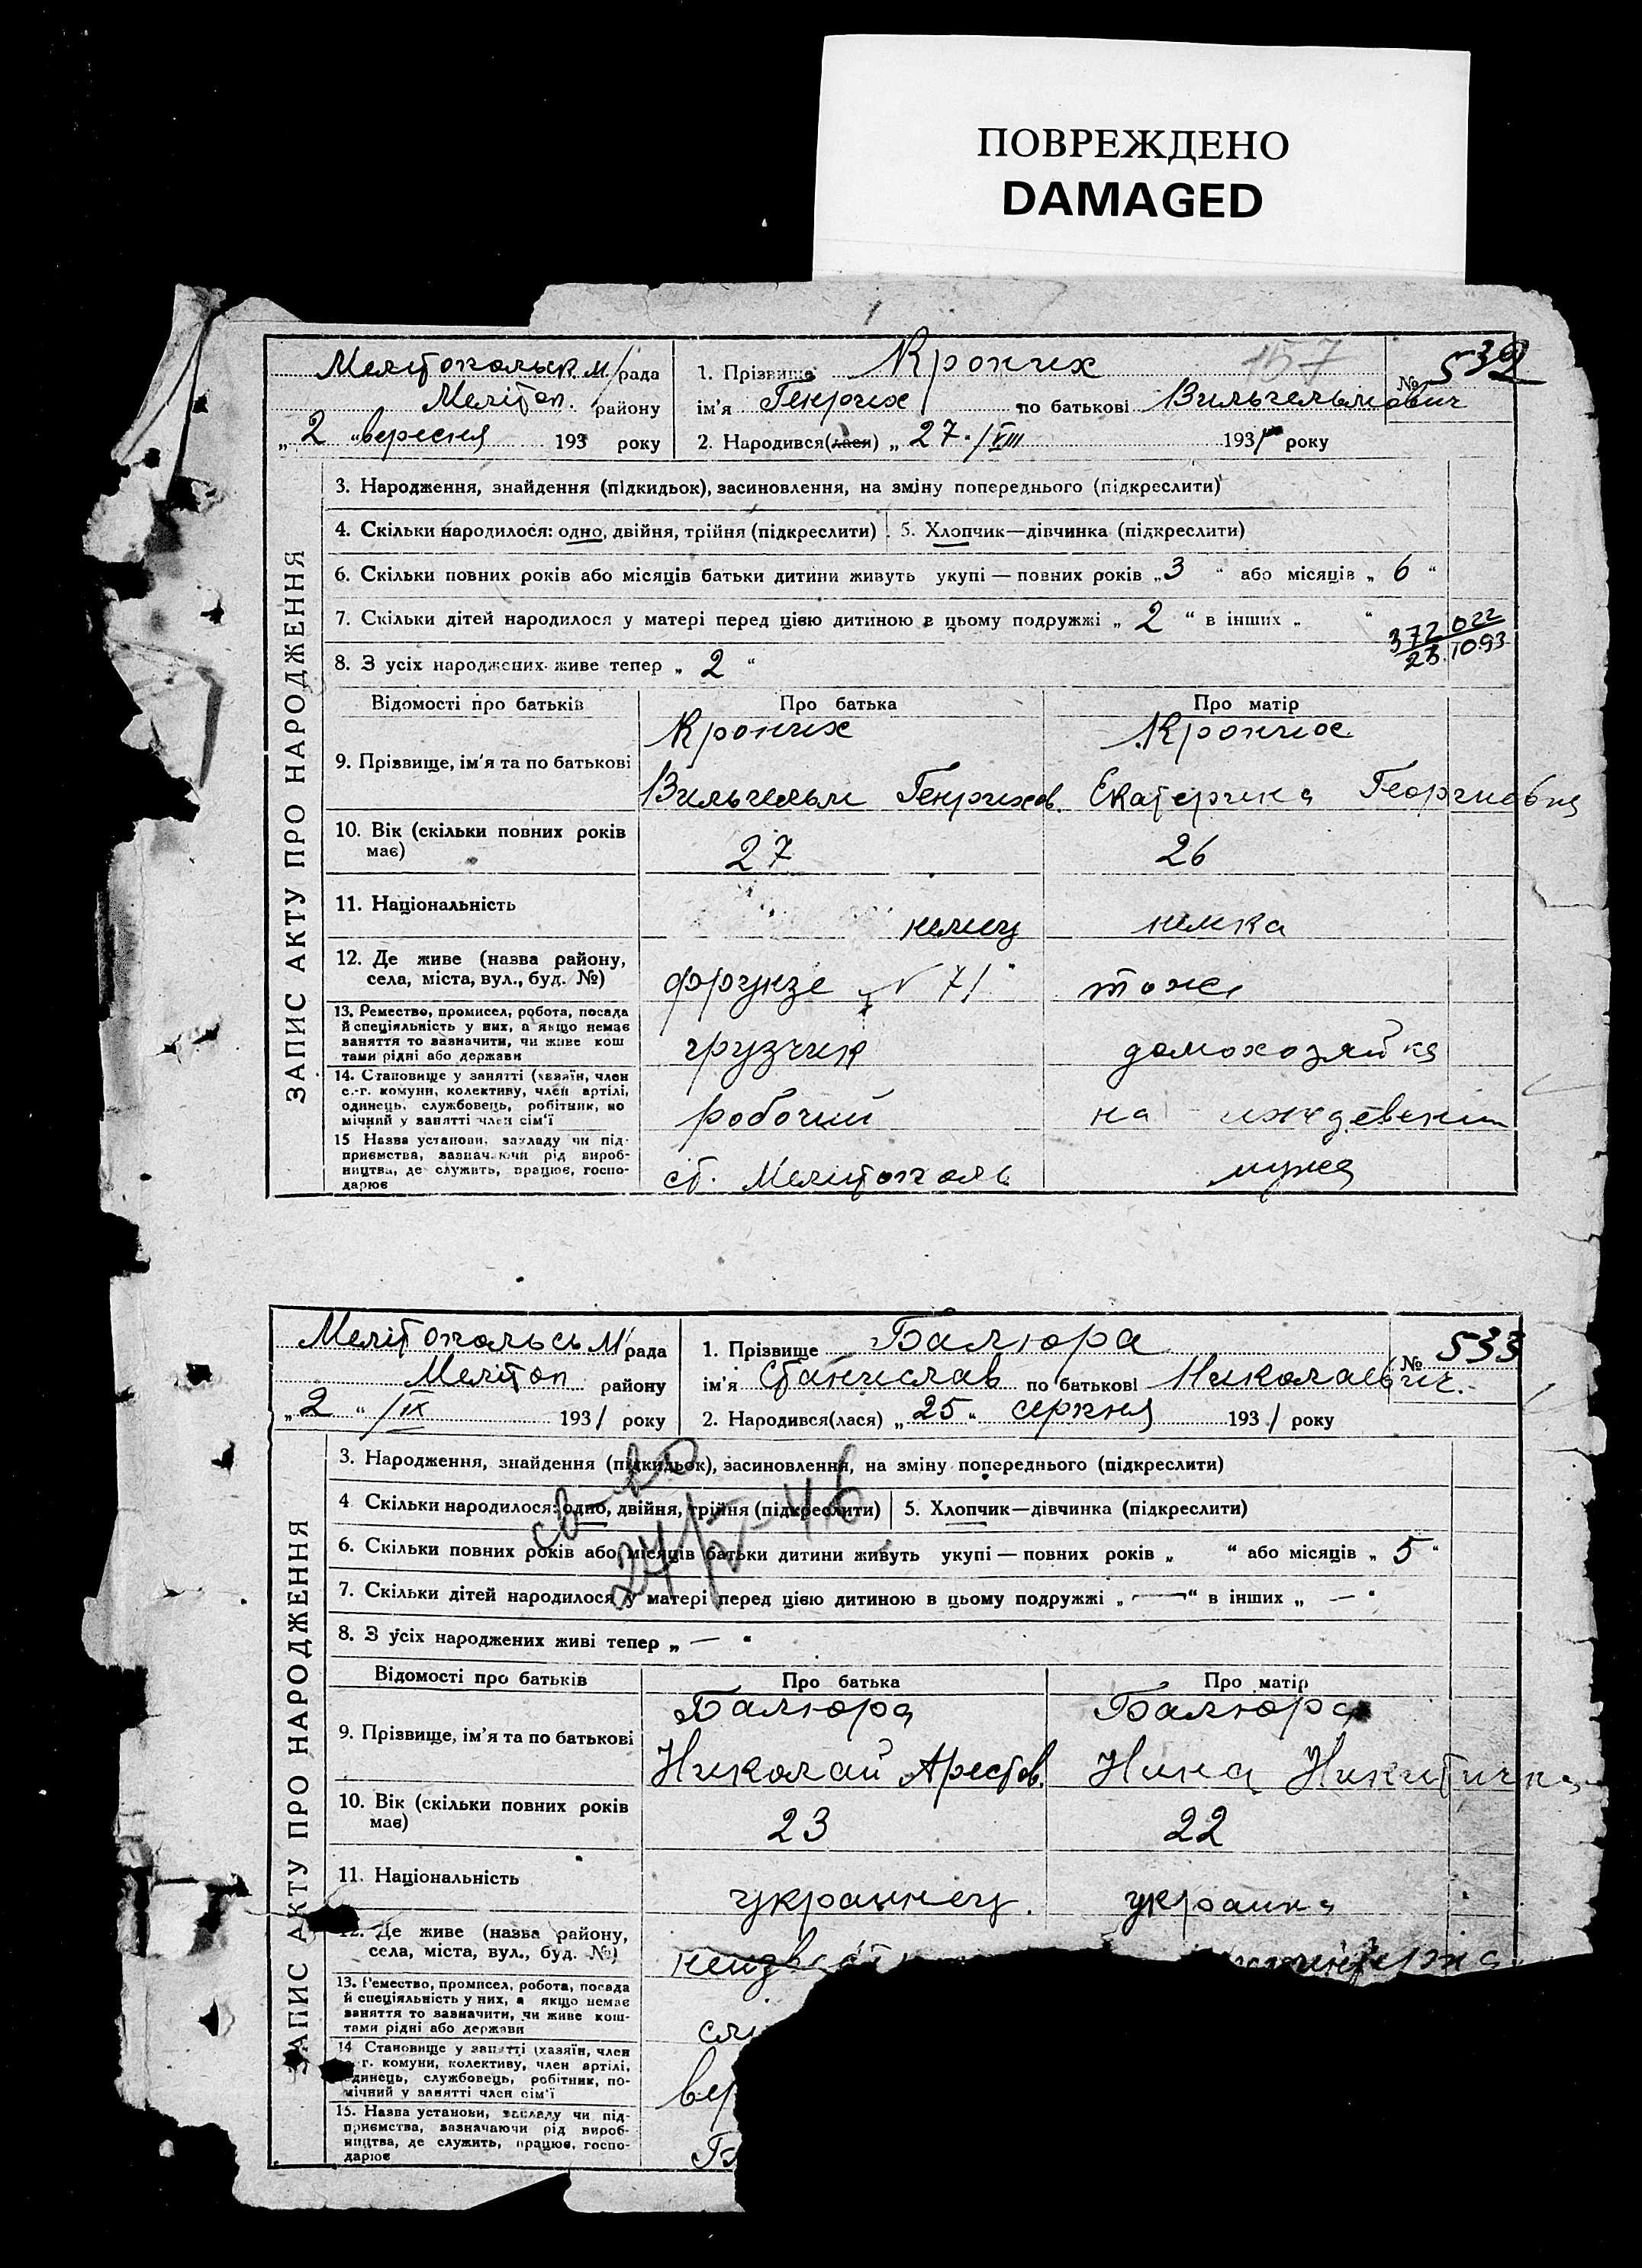 ПОВРЕЖДЕНО
DAMAGED
Мелітопольск м/рада
Мелітоп. району
„ 2 " вересня 193 року
1. Прізвище Кропих
№ 532
157
ім'я Генрих по батькові Вильгельмович
2. Народився(лася) „ 27./VIII 1931 року
ЗАПИС АКТУ ПРО НАРОДЖЕННЯ
3. Народження, знайдення (підкидьок), засиновлення, на зміну попереднього (підкреслити)
4. Скільки народилося: одно, двійня, трійня (підкреслити)
5. Хлопчик—дівчинка (підкреслити)
6. Скільки повних років або місяців батьки дитини живуть укупі — повних років „ 3 " або місяців „ 6 "
7. Скільки дітей народилося у матері перед цією дитиною в цьому подружжі „ 2 " в інших „ "
372 022
23.10.93
8. З усіх народжених живе тепер „ 2 "
Відомості про батьків
Про батька
Про матір
9. Прізвище, ім'я та по батькові
Кропих
Кропих
Вильгельм Генрихов.
Екатерина Георгиевна
10. Вік (скільки повних років має)
27
26
11. Національність
немец
немка
12. Де живе (назва району, села, міста, вул., буд. №)
Фрунзе № 71
тоже
13. Ремество, промисел, робота, посада й спеціяльність у них, а якщо немає заняття то зазначити, чи живе кош тами рідні або держави
грузчик
домохозяйка
14. Становище у занятті (хазяїн, член с.-г. комуни, колективу, член артілі, одинець, службовець, робітник, по мічний у занятті член сім'ї
робочий
на иждевении
15 Назва установи, закладу чи підприємства, зазначаючи рід виробництва, де служить, працює, господарює
ст. Мелітополь
мужа
Мелітопольсь м/рада
Мелітоп району
„ 2 " /IX 1931 року
1. Прізвище Балюра
№ 533
ім'я Станислав по батькові Николаевич.
2. Народився(лася) „ 25 " серпня 1931 року
ЗАПИС АКТУ ПРО НАРОДЖЕННЯ
3. Народження, знайдення (підкидьок), засиновлення, на зміну попереднього (підкреслити)
4 Скільки народилося: одно, двійня, трійня (підкреслити)
5. Хлопчик—дівчинка (підкреслити)
св-во
24/V-46
6. Скільки повних років або місяців батьки дитини живуть укупі — повних років „ " або місяців „ 5 "
7. Скільки дітей народилося у матері перед цією дитиною в цьому подружжі „ — " в інших „ — "
8. З усіх народжених живі тепер „ — "
Відомості про батьків
Про батька
Про матір
9. Прізвище, ім'я та по батькові
Балюра
Балюра
Николай Арестов.
Нина Никитична
10. Вік (скільки повних років має)
23
22
11. Національність
украинец.
украинка
12. Де живе (назва району, села, міста, вул., буд. №)
13. Ремество, промисел, робота, посада й спеціяльність у них, а якщо немає заняття то зазначити, чи живе коштами рідні або держави
14 Становище у занятті (хазяїн, член с.-г. комуни, колективу, член артілі, одинець, службовець, робітник, помічний у занятті член сім'ї
15. Назва установи, закладу чи підприємства, зазначаючи рід виробництва, де служить, працює, господарює